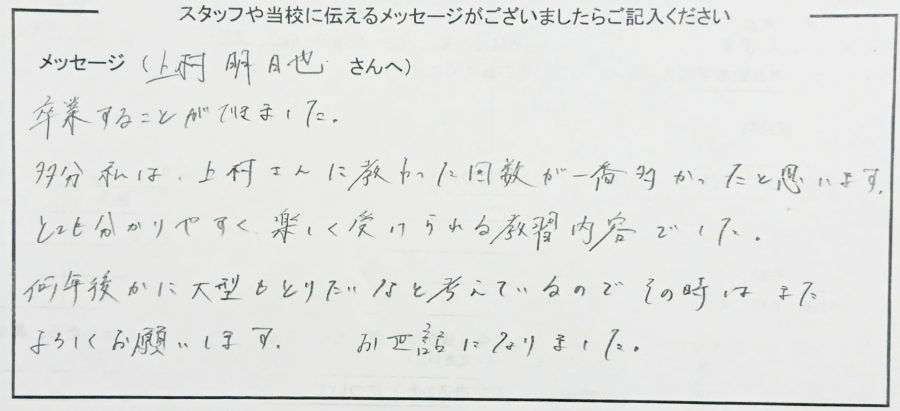 スタッフや当校に伝えるメッセージがございましたらご記入ください
メッセージ（上村 明日也 さんへ）
卒業することができました。
多分私は、上村さんに教わった回数が一番多かったと思います。
とても分かりやすく、楽しく受けられる教習内容でした。
何年後かに大型もとりたいなと考えているのでその時はまた
よろしくお願いします。　お世話になりました。